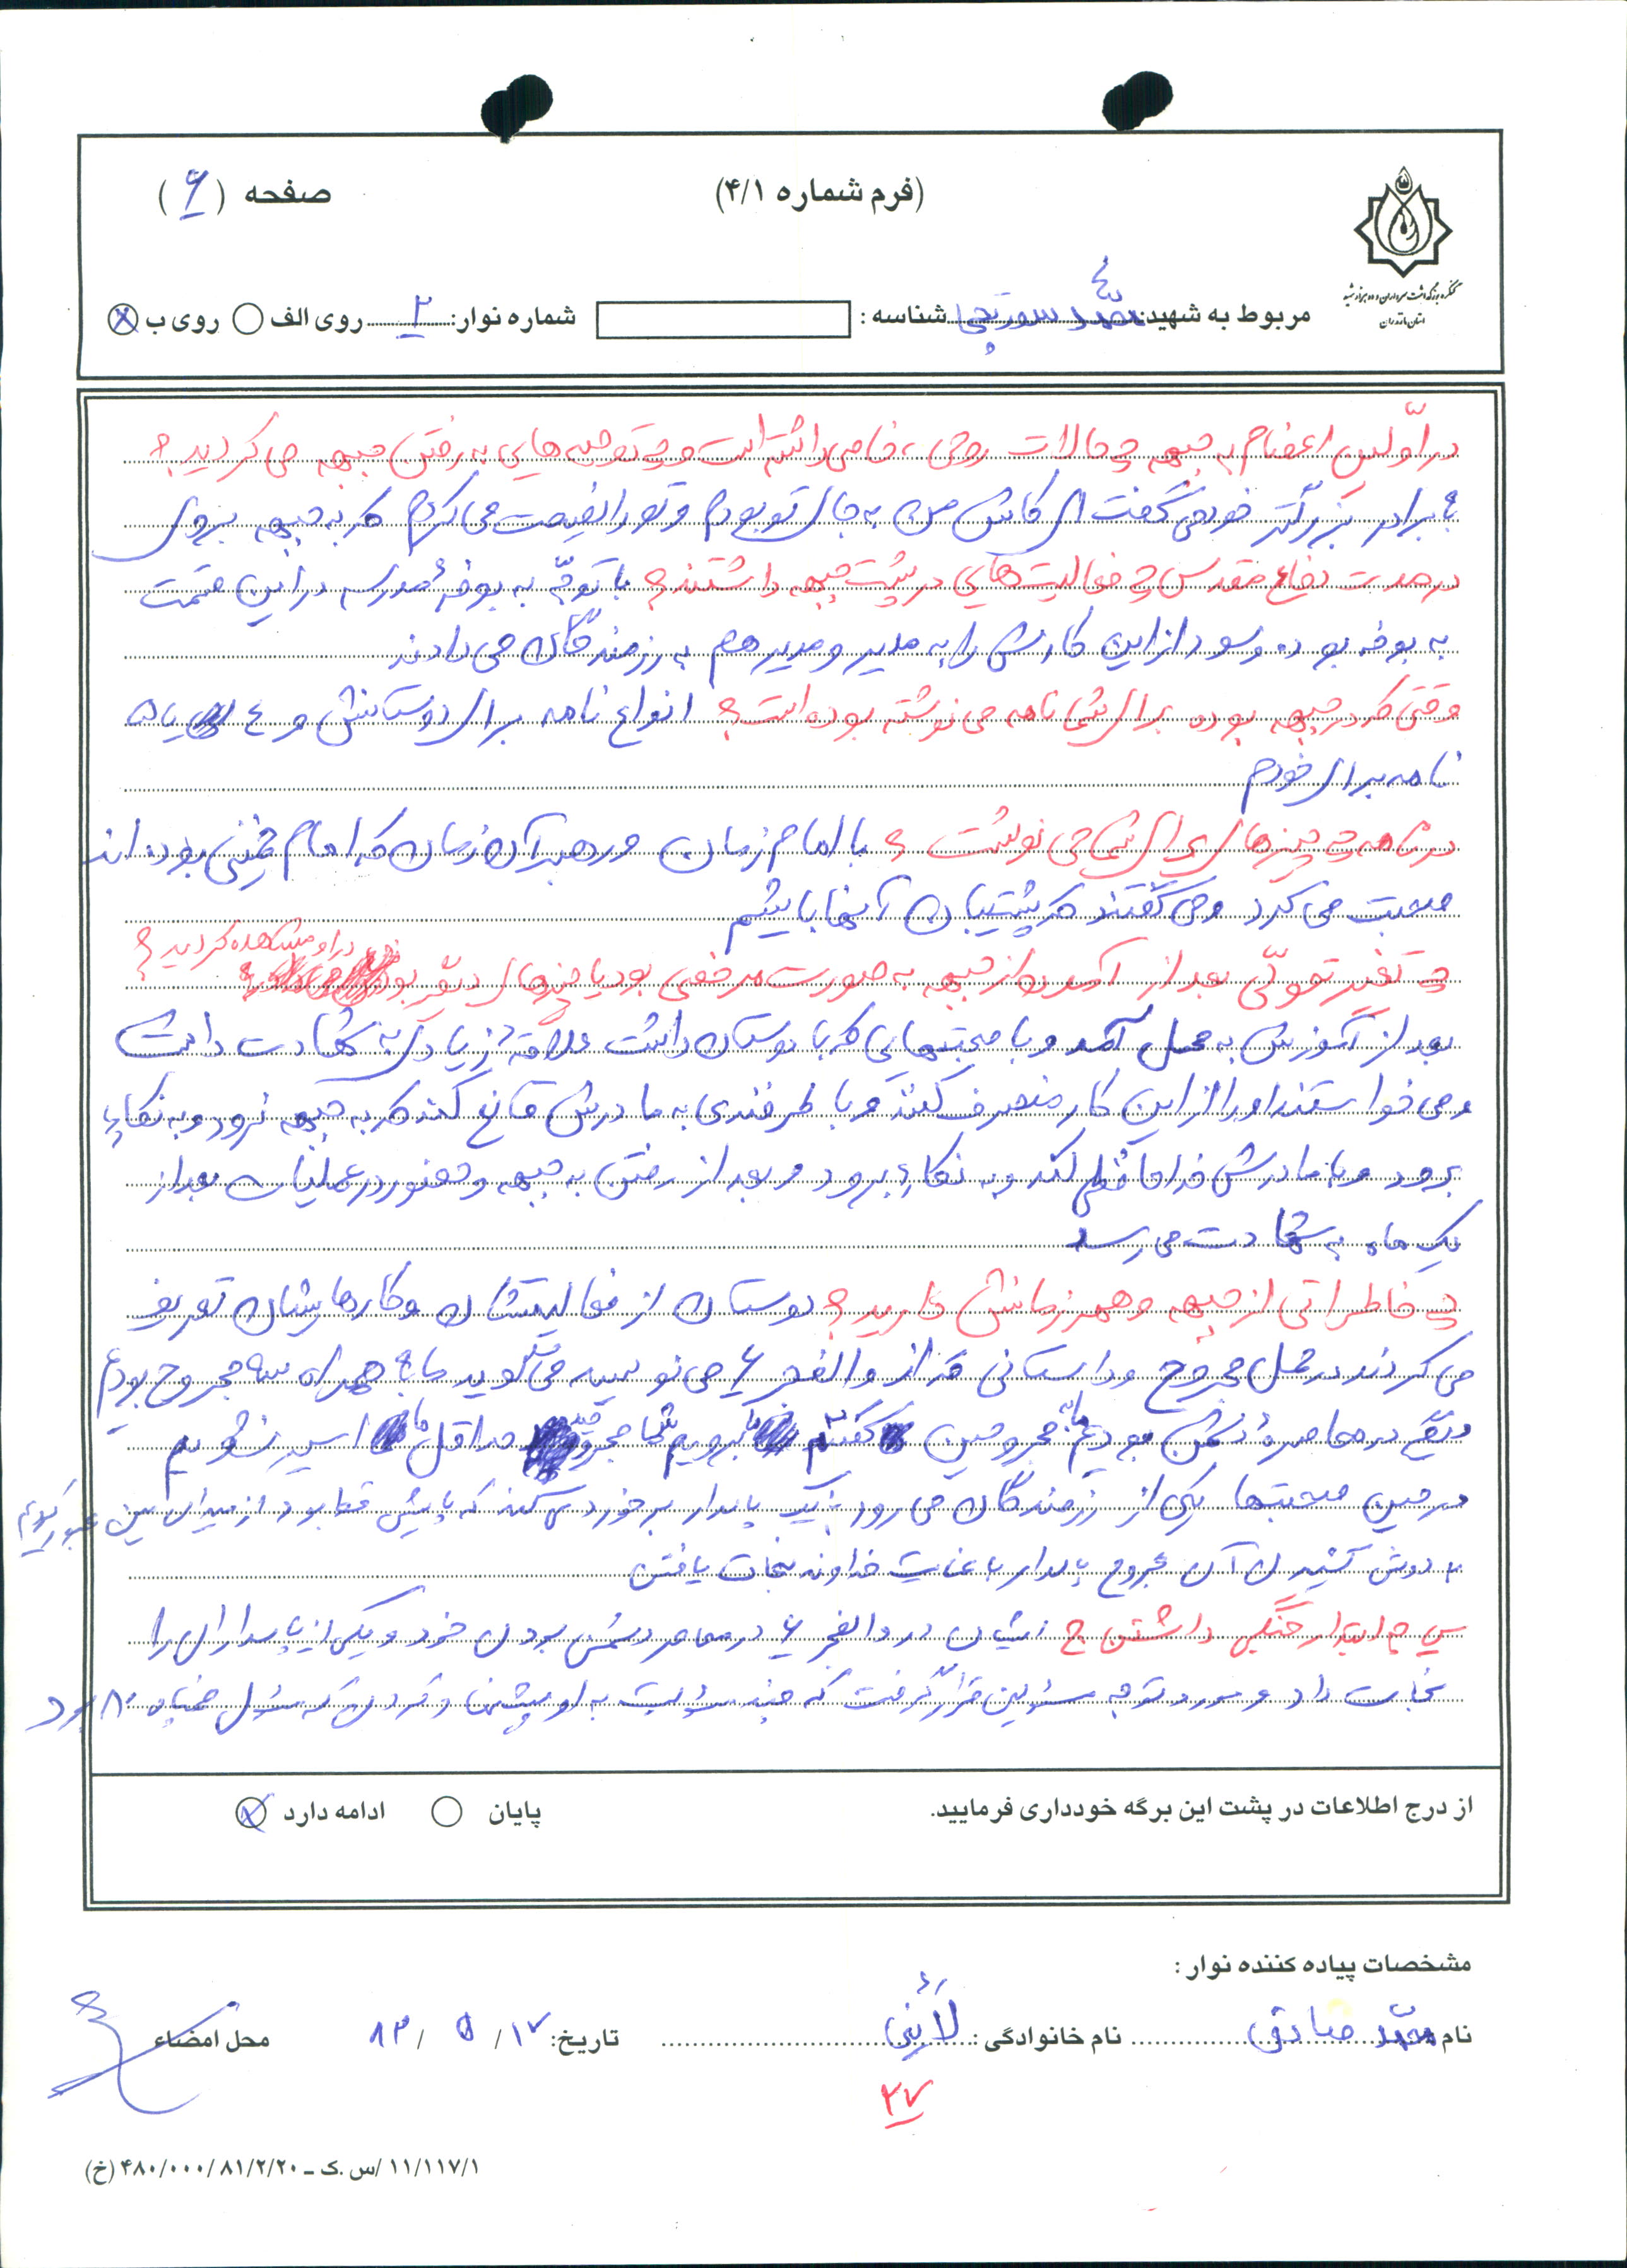 (فرم شماره ۴/۱)
صفحه (۶)
کنگره بزرگداشت سرداران و ده هزار شهید
استان مازندران
مربوط به شهید: محمد سورتیجی شناسه : شماره نوار: ۲ روی الف روی ب
در اوّلین اعضام به جبهه چه حالات روحی، خاصی داشته است و چه توجیه هایی به رفتن جبهه می کردید؟
با برادر بزرگتر خود می گفت ای کاش من به جای تو بودم و تو را نصیحت می کردم که به جبهه بروی
در مدت دفاع مقدس چه فعالیت هایی در پشت جبهه داشتند؟ با توجّه به بوفهٔ مدرسه در این قسمت
به بوفه بوده و سود از این کارش را به مدیر و مدیر هم به رزمندگان می دادند
وقتی که در جبهه بوده برای شما نامه می نوشته بوده است؟ انواع نامه برای دوستانش و ٤ یا ۵
نامه برای خودم
در نامه چه چیزهای برای شما می نوشت؟ با امام زمان و رهبر آن زمان که امام خمینی بوده اند
صحبت می کرد و می گفتند که پشتیبان آنها باشیم
چه تغییر تحولّی بعد از آمدن از جبهه به صورت مرخصی بود یا چیزهای دیگر بود در او مشاهده کردید؟
بعد از آموزش به محل آمد و با صحبتهایی که با دوستان داشت علاقهٔ زیادی به شهادت داشت
و می خواستند او را از این کار منصرف کنند و با طرفندی به مادرش قانع کنند که به جبهه نرود و به نکاء
برود و با مادرش خداحافظی کند و به نکاء برود و بعد از رفتن به جبهه و حضور در عملیات بعد از
یک ماه به شهادت می رسد
چه خاطراتی از جبهه و همرزمانش دارید؟ دوستان از فعالیتشان و کارهایشان تعریف
می کردند در حمل مجروح و داستانی که از والفجر ۶ می نویسد می گوید ما به همراه سه مجروح بودیم
وقتی در محاصرهٔ دشمن بودیم به مجروحین گفتیم ما برویم شما مجروحید حداقل ما اسیر نشویم
در حین صحبتها یکی از رزمندگان می رود به یک پاسدار برخورد می کند که پایش قطع بود از میدان مین عبور کردیم
به دوش کشیدن آن مجروح پاسدار با عنایت خداوند نجات یافتن
سِ چه ابتدار جنگی داشتن ج ایشان در والفجر ۶ در محاصر دشمن بودن خود و یکی از پاسداران را
نجات داد و مورد توجه مسئولین قرار گرفت که چند مسئولیت به او پیشنهاد کردن که مسئول خمپاره ۸۰ بود
از درج اطلاعات در پشت این برگه خودداری فرمایید.
پایان ادامه دارد
مشخصات پیاده کننده نوار :
نام محمد صادق نام خانوادگی : لائینی تاریخ: ۱۷ / ۵ / ۸۳ محل امضاء
۲۷
۱۱/۱۱۷/۱ /س .ک ـ ۴۸۰/۰۰۰/۸۱/۲/۲۰ (خ)